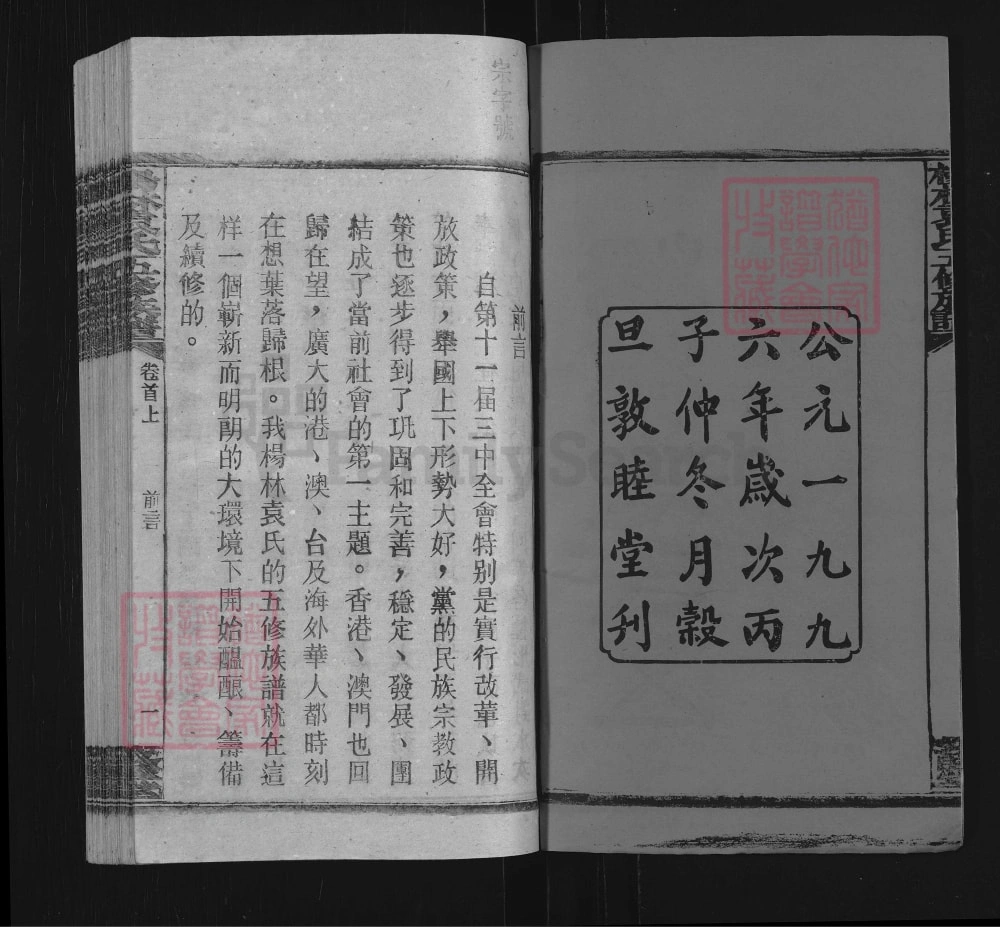 公元一九九
六年歲次丙
子仲冬月穀
旦敦睦堂刊
宗字號
前言
自第十一届三中全會特别是實行改革、開
放政策，舉國上下形勢大好，黨的民族宗教政
策也逐步得到了巩固和完善，穩定、發展、團
結成了當前社會的第一主題。香港、澳門也回
歸在望，廣大的港、澳、台及海外華人都時刻
在想葉落歸根。我楊林袁氏的五修族譜就在這
样一個嶄新而明朗的大環境下開始醞釀、籌備
及續修的。
卷首上
前言
一
FamilySearch